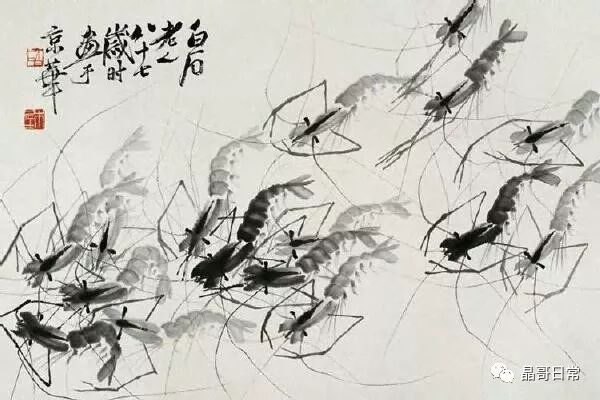 白石
老人
八十七
歲时
画于
京華
晶哥日常